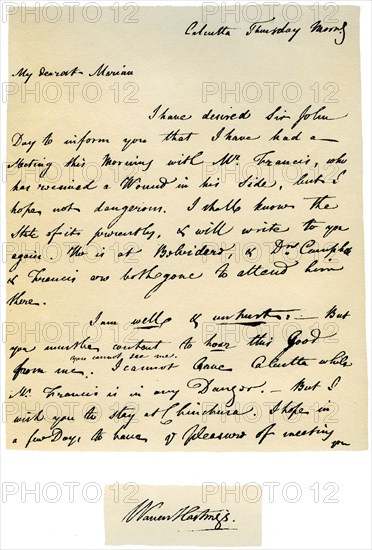 Calcutta Thursday Morng
My dearest Marian
I have desired Sir John
Day to inform you that I have had a
Meeting this Morning with Mr. Francis, who
has received a Wound in his Side, but I
hope not dangerous. I shall know the
State of it presently, & will write to you
again. He is at Belvidere, & Drs. Campbell
& Francis are both gone to attend him
there.
I am well & unhurt. — But
you must be content to hear this Good
you cannot see me.
from me. I cannot leave Calcutta while
Mr. Francis is in any Danger. — But I
wish you to stay at Chinchura. I hope in
a few Days to have ye Pleasure of meeting
you
Warren Hastings.
PHOTO 12